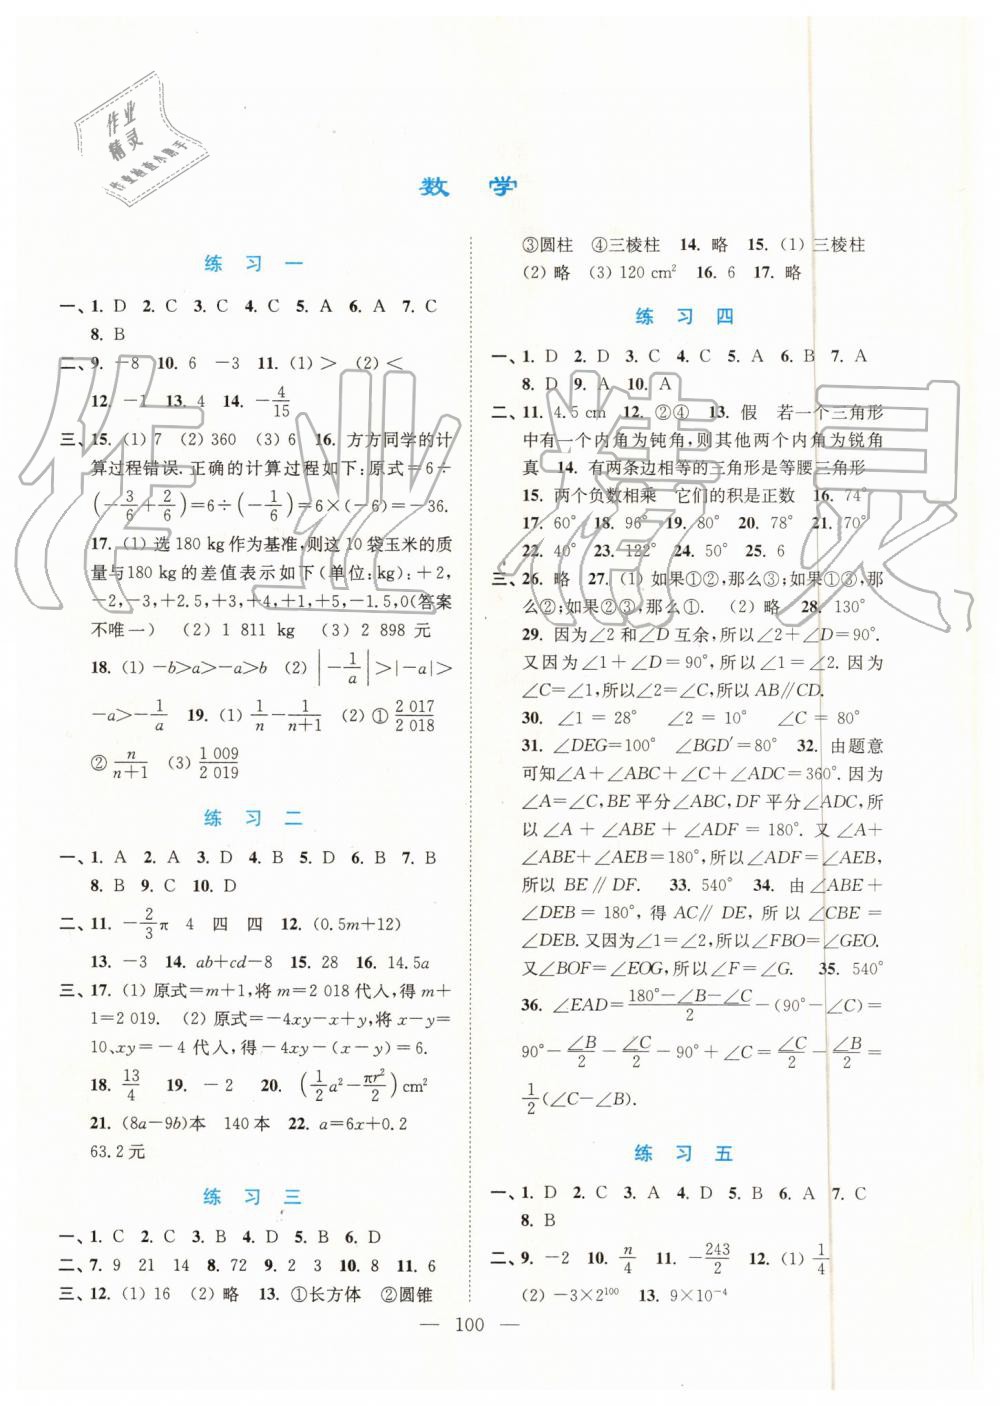 作业
精灵
作业检查小助手
数 学
练 习 一
一、1. D 2. C 3. C 4. C 5. A 6. A 7. C
8. B
二、9. －8 10. 6 －3 11. (1)＞ (2)＜
12. －1 13. 4 14. －4/15
三、15. (1) 7 (2) 360 (3) 6 16. 方方同学的计
算过程错误. 正确的计算过程如下：原式＝6÷
(－3/6＋2/6)＝6÷(－1/6)＝6×(－6)＝－36.
17. (1) 选 180 kg 作为基准，则这 10 袋玉米的质
量与180 kg 的差值表示如下(单位：kg)：＋2，
－2，－3，＋2.5，＋3，＋4，＋1，＋5，－1.5，0(答案
不唯一) (2) 1 811 kg (3) 2 898 元
18. (1) －b＞a＞－a＞b (2) |－1/a|＞|－a|＞
－a＞－1/a 19. (1) 1/n－1/(n＋1) (2) ① 2 017/2 018
② n/(n＋1) (3) 1 009/2 019
练 习 二
一、1. A 2. A 3. D 4. B 5. D 6. B 7. B
8. B 9. C 10. D
二、11. －2/3π 4 四 四 12. (0.5m＋12)
13. －3 14. ab＋cd－8 15. 28 16. 14.5a
三、17. (1) 原式＝m＋1，将 m＝2 018 代入，得 m＋
1＝2 019. (2) 原式＝－4xy－x＋y，将 x－y＝
10、xy＝－4 代入，得－4xy－(x－y)＝6.
18. 13/4 19. －2 20. (1/2a²－πr²/2)cm²
21. (8a－9b)本 140 本 22. a＝6x＋0.2
63.2 元
练 习 三
一、1. C 2. C 3. B 4. D 5. B 6. D
二、7. 9 21 14 8. 72 9. 2 3 10. 8 11. 6
三、12. (1) 16 (2) 略 13. ①长方体 ②圆锥
③圆柱 ④三棱柱 14. 略 15. (1) 三棱柱
(2) 略 (3) 120 cm² 16. 6 17. 略
练 习 四
一、1. D 2. D 3. C 4. C 5. A 6. B 7. A
8. D 9. A 10. A
二、11. 4.5 cm 12. ②④ 13. 假 若一个三角形
中有一个内角为钝角，则其他两个内角为锐角
真 14. 有两条边相等的三角形是等腰三角形
15. 两个负数相乘 它们的积是正数 16. 74°
17. 60° 18. 96° 19. 80° 20. 78° 21. 70°
22. 40° 23. 122° 24. 50° 25. 6
三、26. 略 27. (1) 如果①②，那么③；如果①③，那
么②；如果②③，那么①. (2) 略 28. 130°
29. 因为∠2 和∠D 互余，所以∠2＋∠D＝90°.
又因为∠1＋∠D＝90°，所以∠1＝∠2. 因为
∠C＝∠1，所以∠2＝∠C，所以 AB∥CD.
30. ∠1 ＝ 28° ∠2 ＝ 10° ∠C ＝ 80°
31. ∠DEG＝100° ∠BGD′＝80° 32. 由题意
可知∠A＋∠ABC＋∠C＋∠ADC＝360°. 因为
∠A＝∠C，BE 平分∠ABC，DF 平分∠ADC，所
以∠A ＋ ∠ABE ＋ ∠ADF ＝ 180°. 又 ∠A＋
∠ABE＋∠AEB＝180°，所以∠ADF＝∠AEB，
所以 BE∥DF. 33. 540° 34. 由∠ABE＋
∠DEB ＝ 180°，得 AC∥DE，所以∠CBE ＝
∠DEB. 又因为∠1＝∠2，所以∠FBO＝∠GEO.
又∠BOF＝∠EOG，所以∠F＝∠G. 35. 540°
36. ∠EAD＝(180°－∠B－∠C)/2－(90°－∠C)＝
90°－∠B/2－∠C/2－90°＋∠C＝∠C/2－∠B/2＝
1/2(∠C－∠B).
练 习 五
一、1. D 2. C 3. A 4. D 5. B 6. A 7. C
8. B
二、9. －2 10. n/4 11. －243/2 12. (1) 1/4
(2) －3×2¹⁰⁰ 13. 9×10⁻⁴
— 100 —
作业精灵